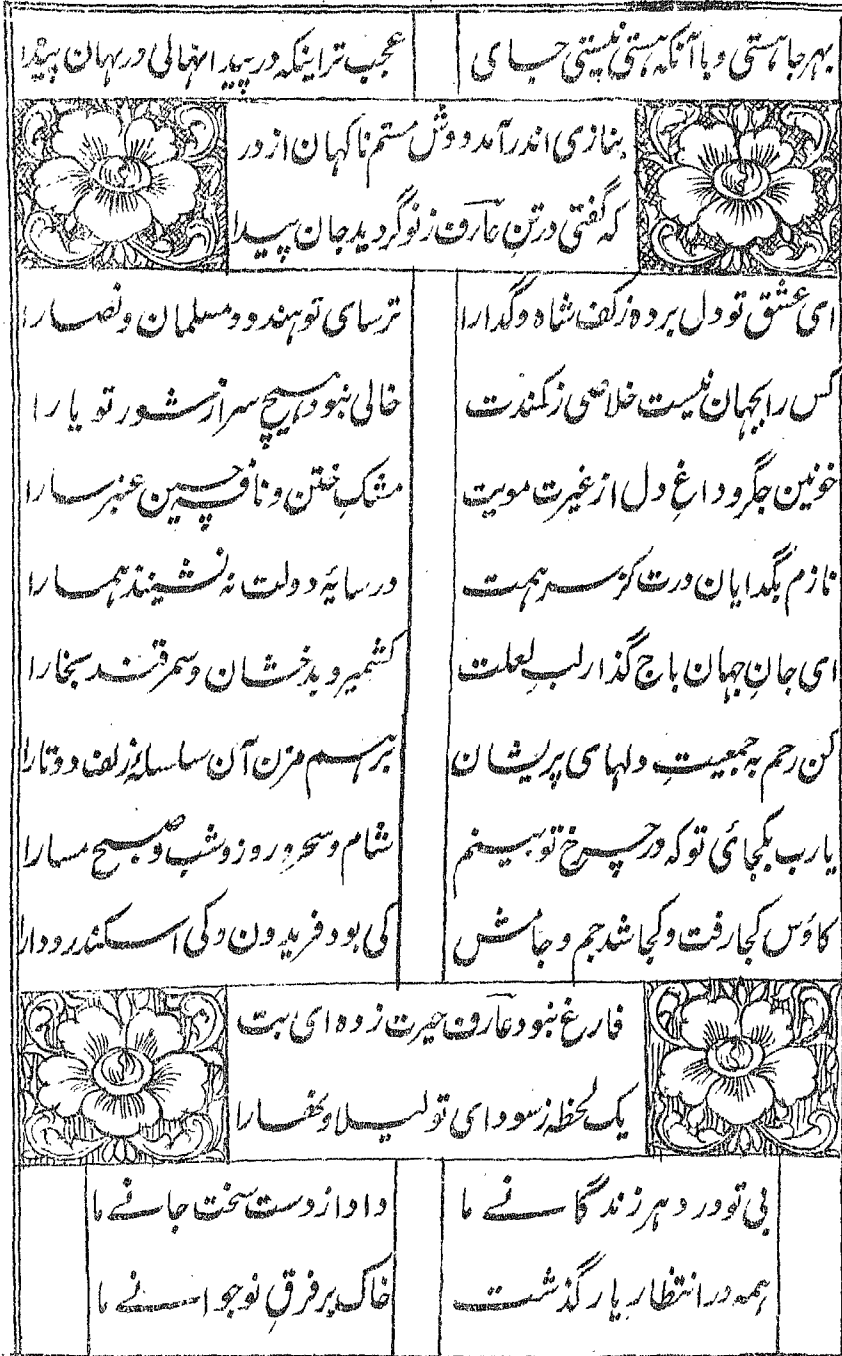 بهر جا هستی و با آنکه هستی نیستی جای عجب تر اینکه در پیدا نهانی در نهان پیدا
بنازی اندر آمد دوش مستم ناکهان از در
که گفتی در تن عارف ز نو گردید جان پیدا
ای عشق تو دل برده ز کف شاه و گدا را ترسای تو هندو و مسلمان و نصارا
کس را بجهان نیست خلاصی ز کمندت خالی نبود هیچ سر از شور تو یارا
خونین جگر و داغِ دل از غیرت مویت مشکِ ختن و نافهٔ چین عنبر سارا
نازم بگدایان درت کز سر همت در سایهٔ دولت نه نشینند هما را
ای جانِ جهان باج گذار لبِ لعلت کشمیر و بدخشان و سمرقند بخارا
کن رحم به جمعیتِ دلهای پریشان برهم مزن آن سلسلهٔ زلف دوتا را
یارب بکجائی تو که در چرخ تو بینم شام و سحر و روز و شب و صبح مسا را
کاؤس کجا رفت و کجا شد جم و جامش کی بود فریدون و کی اسکندر و دارا
فارغ نبود عارف حیرت زده ای بت
یک لحظه ز سودای تو لیلا و نهارا
بی تو در دهر زندگانے ما داد از دست سخت جانے ما
همه در انتظارِ یار گذشت خاک بر فرقِ نوجوانے ما